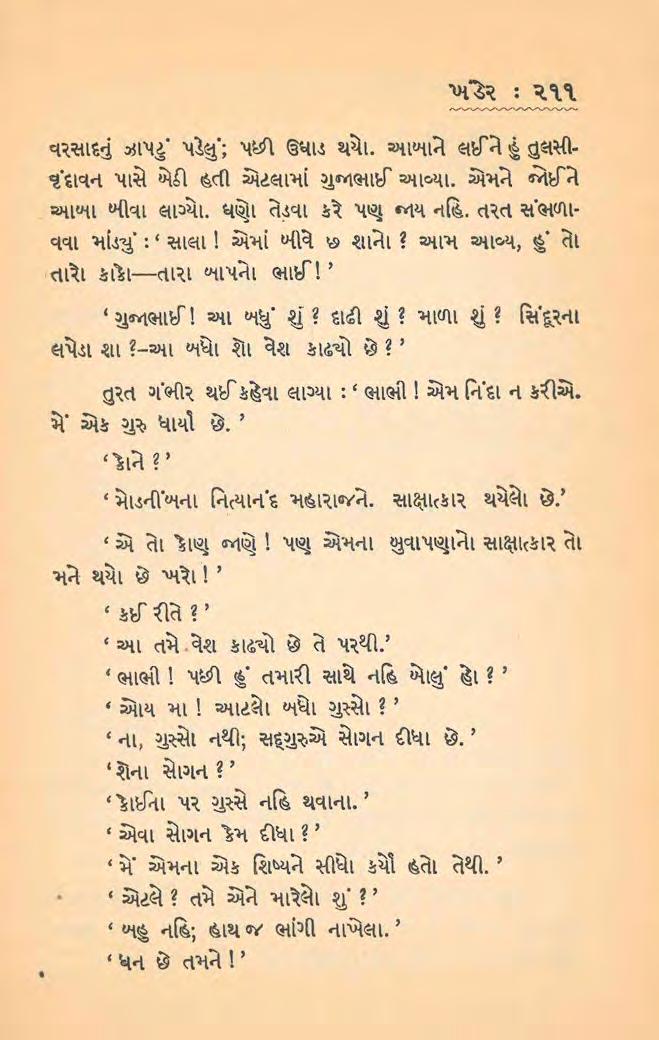 ખંડેર : ૨૧૧
વરસાદનું ઝાપટું પડેલું; પછી ઉઘાડ થયો. આબાને લઈને હું તુલસી-
વૃંદાવન પાસે બેઠી હતી એટલામાં ગુજાભાઈ આવ્યા. એમને જોઈને
આબા બીવા લાગ્યો. ઘણો તેડવા કરે પણ જાય નહિ. તરત સંભળા-
વવા માંડ્યું : ‘ સાલા ! એમાં બીવે છ શાનો ? આમ આવ્ય, હું તો
તારો કાકો—તારા બાપનો ભાઈ ! ’
‘ ગુજાભાઈ ! આ બધું શું ? દાઢી શું ? માળા શું ? સિંદૂરના
લપેડા શા ?–આ બધો શો વેશ કાઢ્યો છે ? ’
તુરત ગંભીર થઈ કહેવા લાગ્યા : ‘ ભાભી ! એમ નિંદા ન કરીએ.
મેં એક ગુરુ ધાર્યા છે. ’
‘ કોને ? ’
‘ મોડનીંબના નિત્યાનંદ મહારાજને. સાક્ષાત્કાર થયેલો છે.’
‘ એ તો કોણ જાણે ! પણ એમના બુવાપણાનો સાક્ષાત્કાર તો
મને થયો છે ખરો ! ’
‘ કઈ રીતે ? ’
‘ આ તમે વેશ કાઢ્યો છે તે પરથી.’
‘ ભાભી ! પછી હું તમારી સાથે નહિ બોલું હો ? ’
‘ ઓય મા ! આટલો બધો ગુસ્સો ? ’
‘ ના, ગુસ્સો નથી; સદ્ગુરુએ સોગન દીધા છે. ’
‘ શેના સોગન ? ’
‘ કોઈના પર ગુસ્સે નહિ થવાના. ’
‘ એવા સોગન કેમ દીધા ? ’
‘ મેં એમના એક શિષ્યને સીધો કર્યો હતો તેથી. ’
‘ એટલે ? તમે એને મારેલો શું ? ’
‘ બહુ નહિ; હાથ જ ભાંગી નાખેલા. ’
‘ ધન છે તમને ! ’